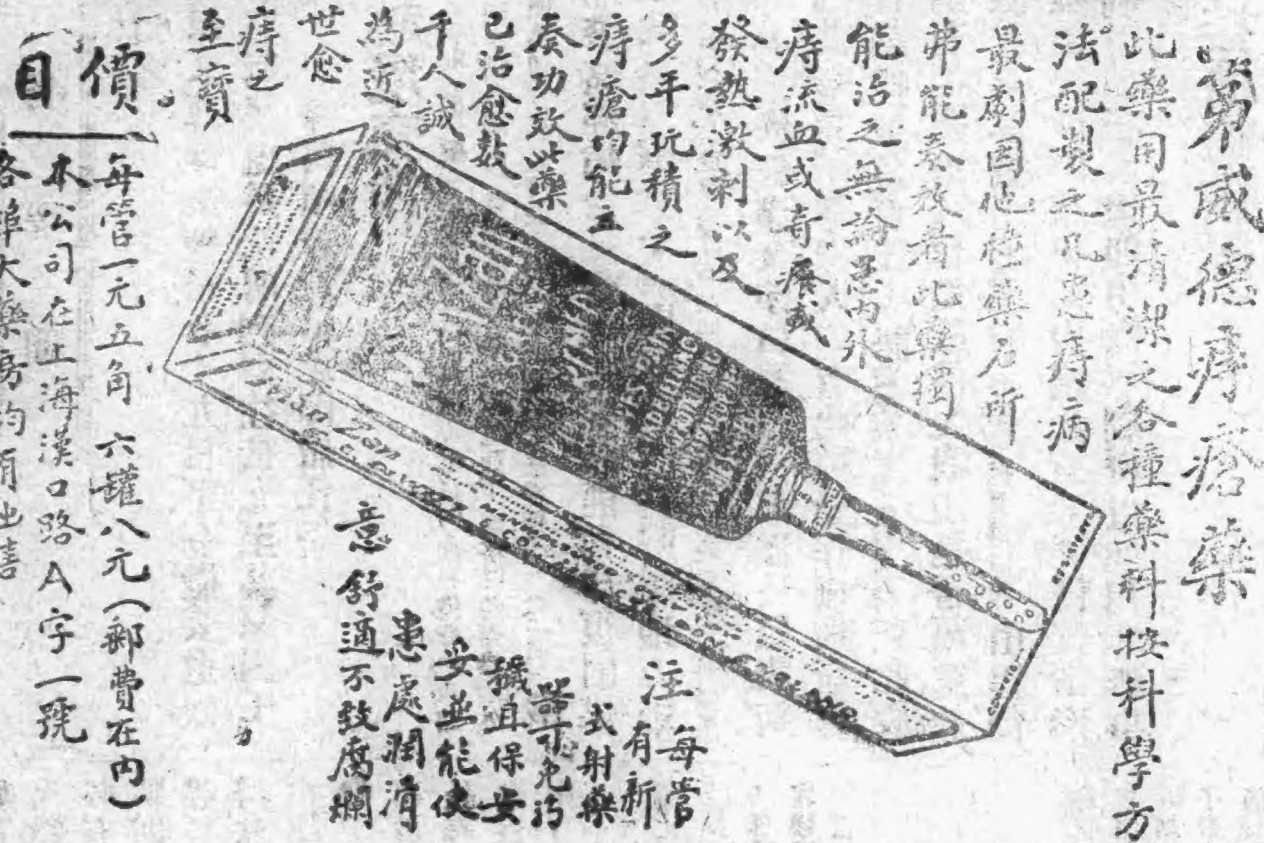 第威德痔瘡藥
此藥用最清潔之各種藥料按科學方
法配製之凡患痔病
最劇因他種藥石所
弗能奏效者此藥獨
能治之無論患內外
痔流血或奇癢或
發熱激刺以及
多年玩積之
痔瘡均能立
奏功效此藥
已治愈數
千人誠
為近
世愈
痔之
至寶
注意
每管
有新
式射藥
器可免污
穢且保安
妥並能使
患處潤滑
舒適不致腐爛
價目
每管一元五角 六罐八元（郵費在內）
本公司在上海漢口路A字一號
各埠大藥房均有出售
Zan